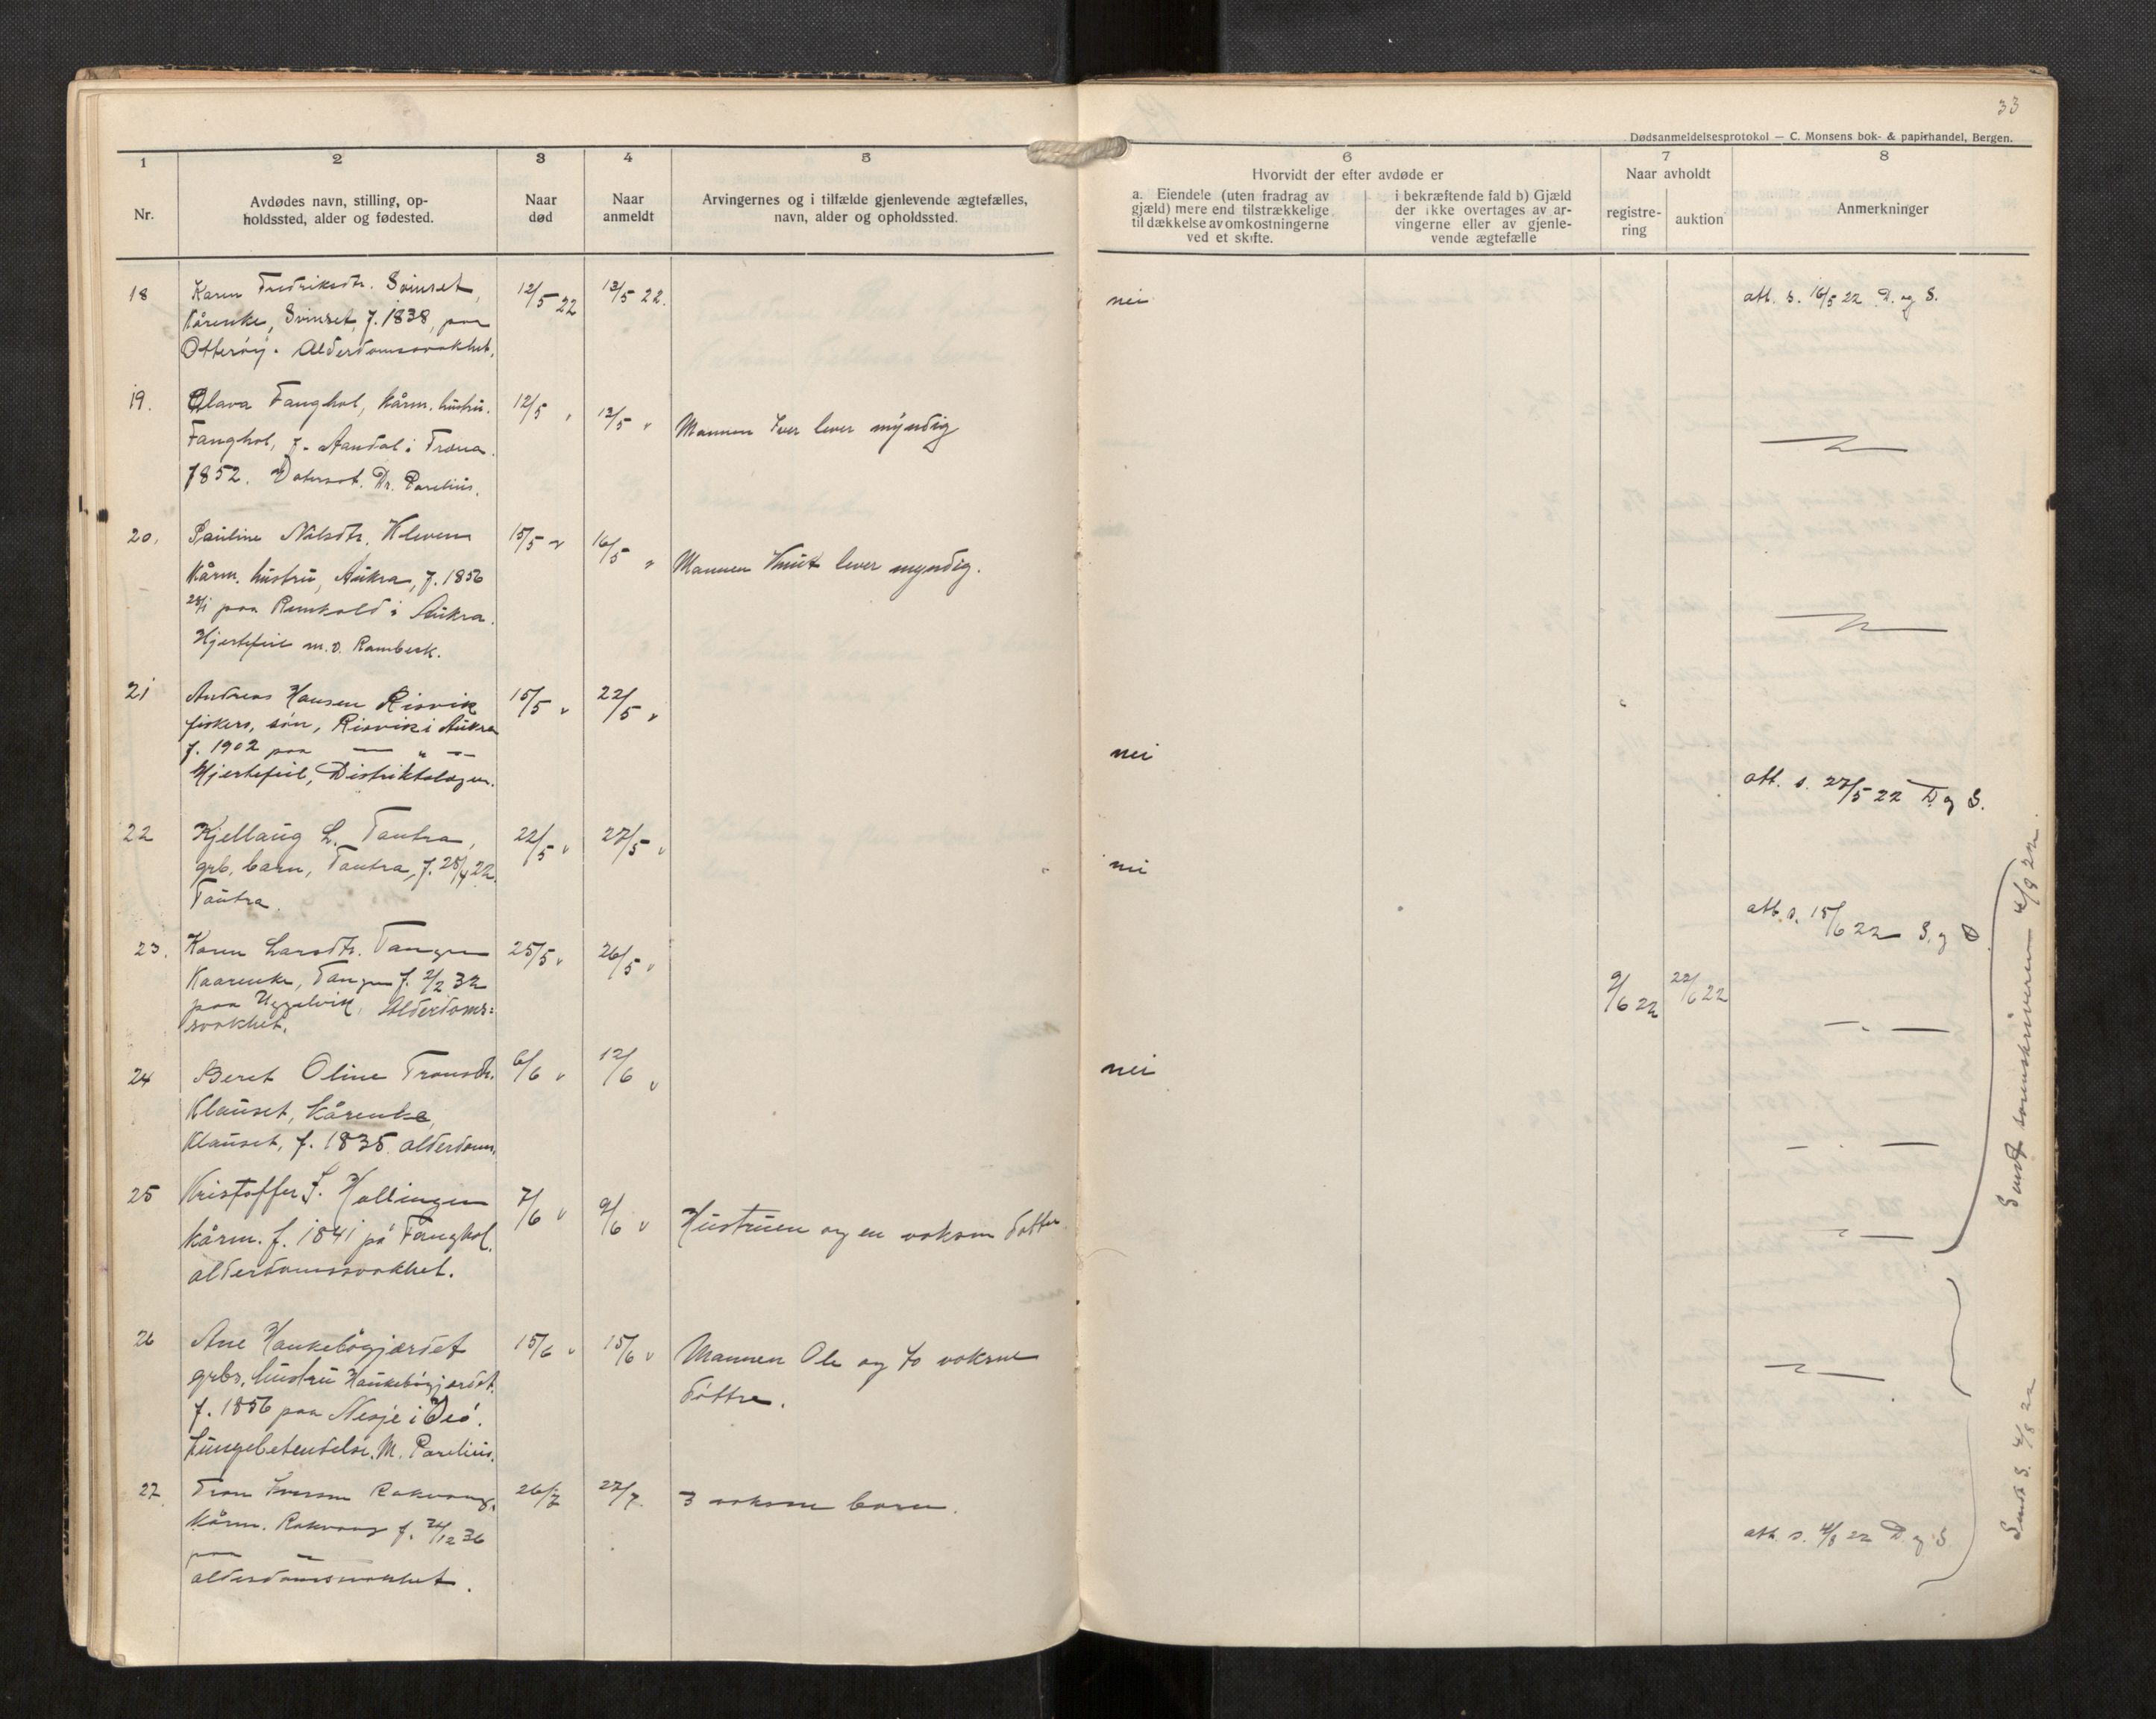 33
Dødsanmeldelsesprotokol — C. Monsens bok- & papirhandel, Bergen.
1 2 3 4 5 6 7 8
Nr.
Avdødes navn, stilling, op-
holdssted, alder og fødested.
Naar
død
Naar
anmeldt
Arvingernes og i tilfælde gjenlevende ægtefælles,
navn, alder og opholdssted.
Hvorvidt der efter avdøde er
a. Eiendele (uten fradrag av
gjæld) mere end tilstrækkelige
til dækkelse av omkostningerne
ved et skifte.
i bekræftende fald b) Gjæld
der ikke overtages av ar-
vingerne eller av gjenle-
vende ægtefælle
Naar avholdt
registre-
ring
auktion
Anmerkninger
18 Karen Fredriksdtr. Svinset, 12/5 22 13/5 22. nei att. s. 16/5 22 D. og S.
Kårenke, Svinset, f. 1838, paa
Otterøy. Alderdomssvakhet.
19. Olava Tanghol, kårm. hustru. 12/5 " 13/5 " Mannen Iver lever myndig
Tanghol, f. Aandal i Træna
1852. Dr. Parelius.
20. Pauline Nilsdtr. Kleven 15/5 " 16/5 " Mannen Knut lever myndig.
Kårm. hustru, Aukra, f. 1856
28/1 paa i Aukra.
Hjertefeil m.v. Rambeck.
21 Andreas Hansen Risvik 15/5 " 22/5 "
fiskers, søn, Risvik i Aukra
f. 1902 paa — " — nei
Hjertefeil, Distriktslægen. att. s. 27/5 22 D og S.
22 Kjellaug L. Tautra, 22/5 " 27/5 " nei
grb. barn, Tautra, f. 25/4 22.
Tautra. att. s. 15/6 22 S. og D.
23. Karen Larsdtr. Tangen 25/5 " 26/5 " 9/6 22 22/6 22
Kaarenke, Tangen f. 2/2 32
paa Uggelvik, Alderdoms=
svakhet. — " —
24 Beret Oline Tronsdtr. 6/6 " 12/6 " nei
Klauset, kårenke,
Klauset, f. 1835. alderdom. — " —
25 Kristoffer J. Hollingen 7/6 " 9/6 " Hustruen og en voksen datter
kårm. f. 1841 på Tanghol. — " —
alderdomssvakhet.
26 Ane Haukebøgjærdet 15/6 " 15/6 " Mannen Ole og to voksne
grbr. hustru Haukebøgjærdet. døttre.
f. 1856 paa Nesje i Veø. — " —
Lungebetendelse. M. Parelius.
27. Tron Iversen Rakvaag. 26/7 27/7. 3 voksne barn.
Kårm. Rakvaag f. 21/12 36
paa — " — att. s. 4/8 22 D. og S.
alderdomssvakhet.
Sendt sorenskriveren 4/9 22.
Sendt S. 4/8 22